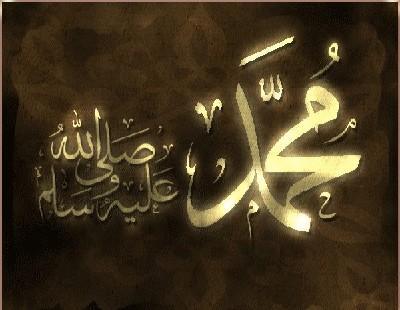 محمد
صلى الله
عليه وسلم